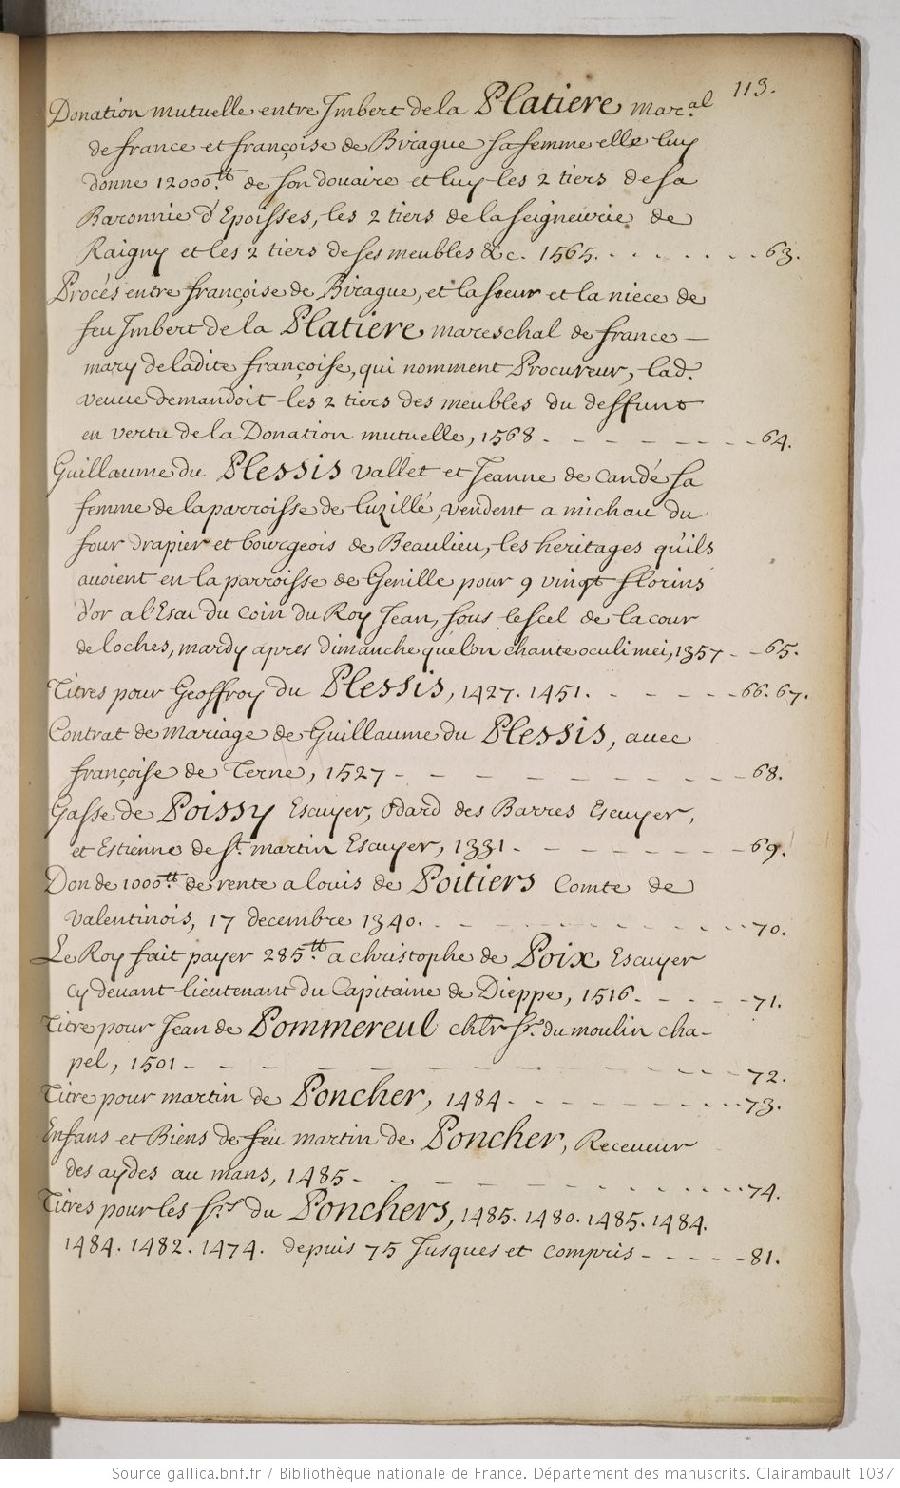 113.
Donation mutuelle entre Jmbert de la Platiere mar.al
de france et françoise de Birague sa femme elle luy
donne 12000.tt de son douaire et luy les 2 tiers de sa
Baronnie d'Epoisses, les 2 tiers de la seigneurie de
Raigny et les 2 tiers de ses meubles &c. 1565. . . . . . . . . 63.
Procés entre françoise de Birague, et la soeur et la niece de
feu Jmbert de la Platiere mareschal de france —
mary de ladite françoise, qui nomment Procureur, lad.
veuve demandoit les 2 tiers des meubles du deffunt
en vertu de la Donation mutuelle, 1568 - - - - - - - - 64.
Guillaume du Plessis vallet et Jeanne de Candé sa
femme de la parroisse de luzillé, vendent a michau du
four drapier et bourgeois de Beaulieu, les heritages qu'ils
avoient en la parroisse de Genille pour 9 vingt florins
d'or a l'Escu du coin du Roy Jean, sous le scel de la cour
de loches, mardy apres dimanche que l'on chante oculi mei, 1357 - - 65.
Titres pour Geoffroy du Plessis, 1427. 1451. - - - - - 66. 67.
Contrat de mariage de Guillaume du Plessis, avec
françoise de Terne, 1527 - - - - - - - - - 68.
Gasse de Poissy Escuyer, Odard des Barres Escuyer,
et Estienne de St. martin Escuyer, 1331 - - - - - - - 69.
Don de 1000.tt de rente a louis de Poitiers Comte de
valentinois, 17 decembre 1340. - - - - - - - - 70.
Le Roy fait payer 285.tt a christophe de Poix Escuyer
cy devant lieutenant du Capitaine de Dieppe, 1516 - - - - 71.
Titre pour Jean de Pommereul chlr sr. du moulin cha-
pel, 1501 - - - - - - - - - - - 72.
Titre pour martin de Poncher, 1484 - - - - - - - 73.
Enfans et Biens de feu martin de Poncher, Receveur
des aydes au mans, 1485 - - - - - - - - - 74.
Titres pour les srs du Ponchers, 1485. 1480. 1485. 1484.
1484. 1482. 1474. depuis 75 Jusques et compris - - - - - 81.
Source gallica.bnf.fr / Bibliothèque nationale de France. Département des manuscrits. Clairambault 1037